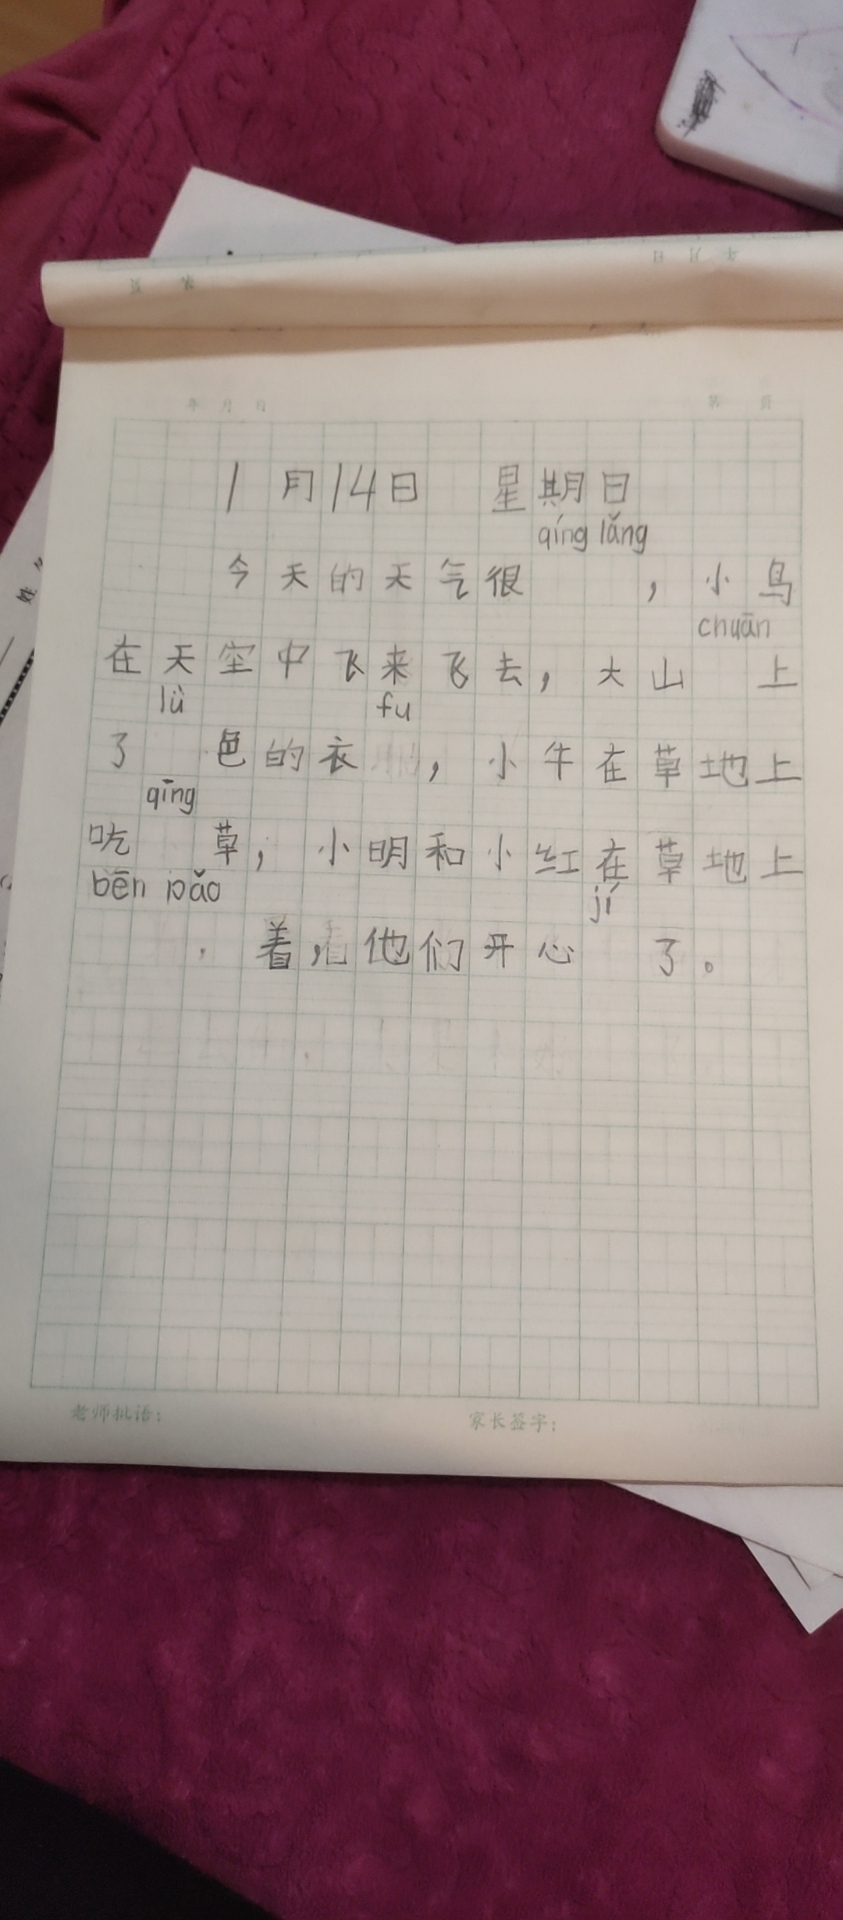 年 月 日 第 页
1月14日 星期日
qíng lǎng
今天的天气很 ，小鸟
chuān
在天空中飞来飞去，大山 上
lǜ fu
了 色的衣 ，小牛在草地上
qīng
吃 草，小明和小红在草地上
bēn pǎo jí
着，他们开心 了。
老师批语： 家长签字：